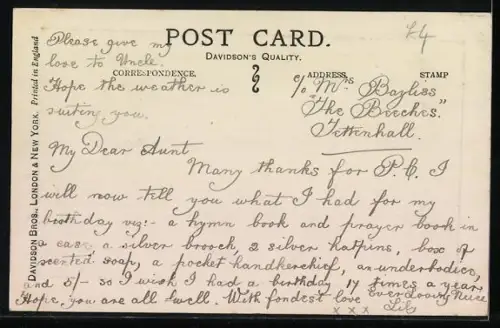 £4
Please give my
love to Uncle.
Hope the weather is
suiting you.
POST CARD.
DAVIDSON'S QUALITY.
CORRESPONDENCE.
ADDRESS.
STAMP
DAVIDSON BROS., LONDON & NEW YORK. Printed in England
c/o Mrs Bayliss
"The Beeches"
Tettenhall.
My Dear Aunt
Many thanks for P.C. I
will now tell you what I had for my
birthday viz:- a hymn book and prayer book in
a case, a silver brooch, 2 silver hatpins, box of
scented soap, a pocket handkerchief, an underbodice,
and 5/- so I wish I had a birthday 17 times a year.
Hope you are all well. With fondest love Everloving Niece
x x x Lily